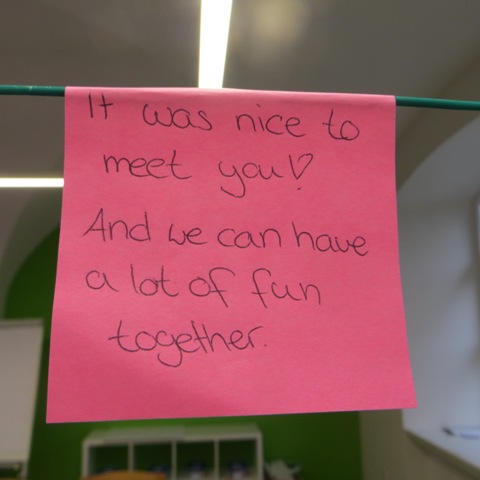 It was nice to
meet you♡
And we can have
a lot of fun
together.